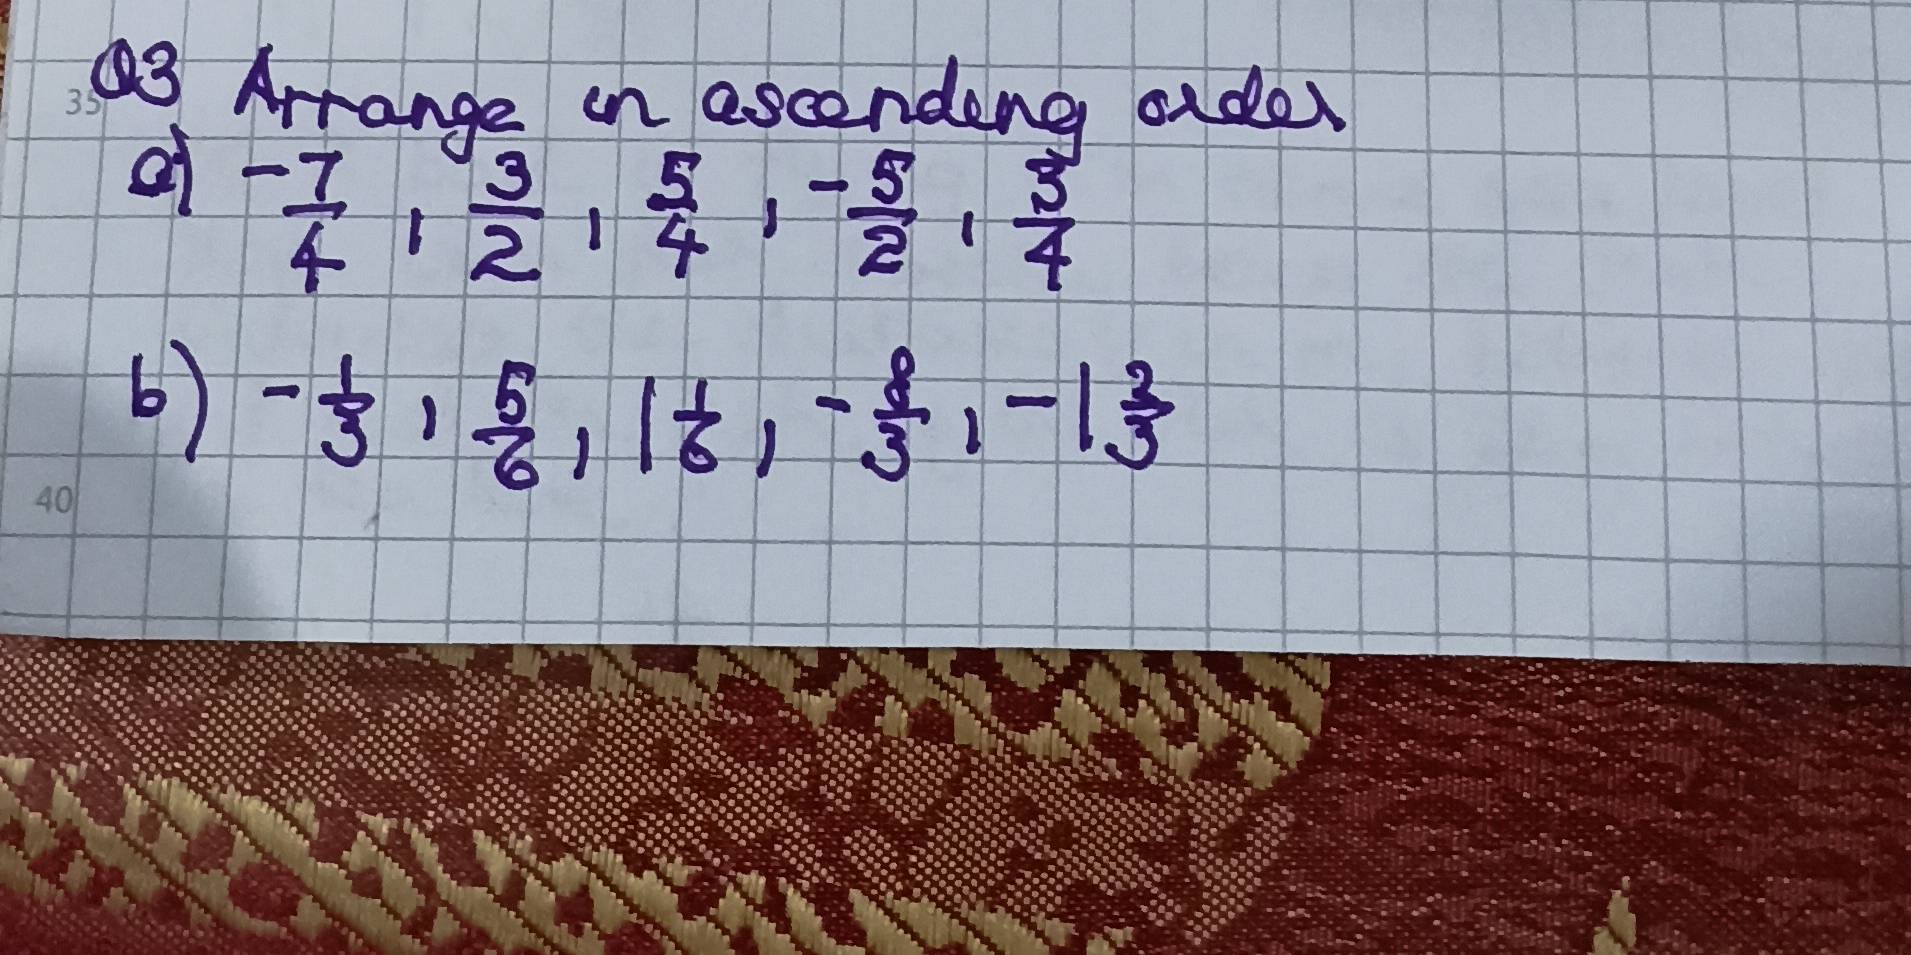 35 Q3 Arrange in ascending order
a) -7/4, 3/2, 5/4, -5/2, 3/4
b) -1/3, 5/6, 1 1/6, -8/3, -1 2/3
40